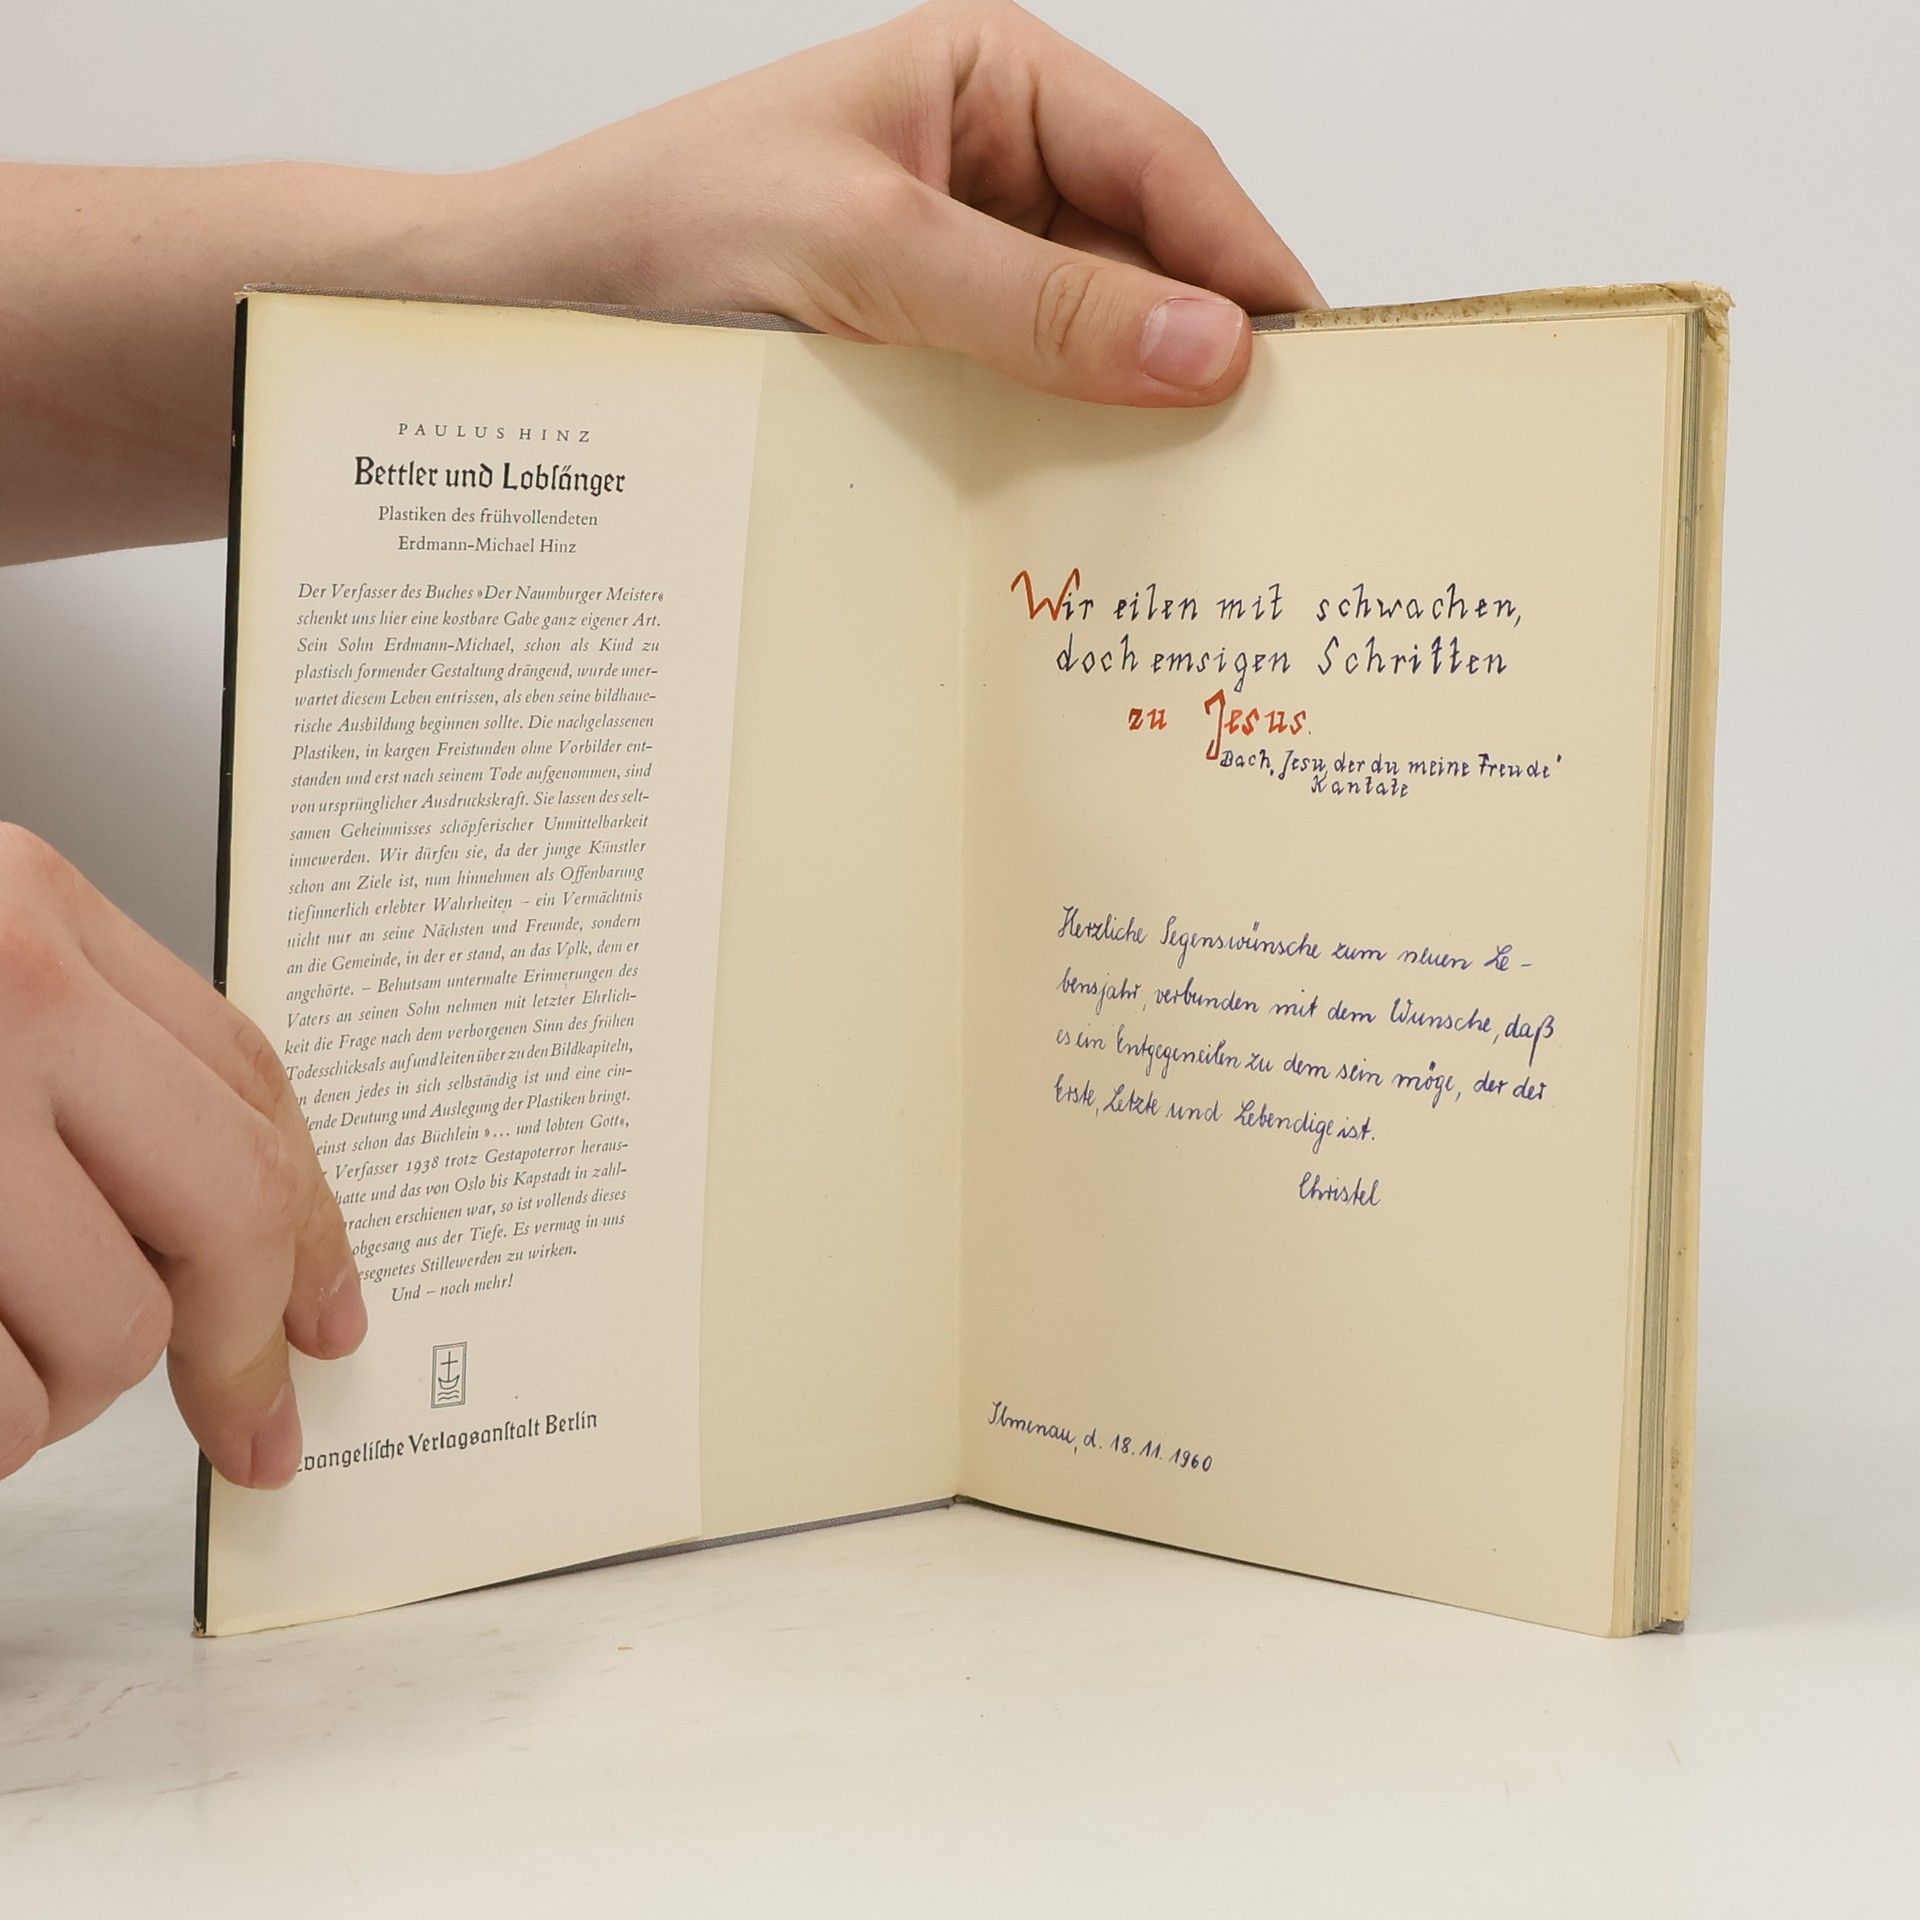 PAULUS HINZ
Bettler und Lobſänger
Plastiken des frühvollendeten
Erdmann-Michael Hinz
Der Verfasser des Buches »Der Naumburger Meister«
schenkt uns hier eine kostbare Gabe ganz eigener Art.
Sein Sohn Erdmann-Michael, schon als Kind zu
plastisch formender Gestaltung drängend, wurde uner-
wartet diesem Leben entrissen, als eben seine bildhaue-
rische Ausbildung beginnen sollte. Die nachgelassenen
Plastiken, in kargen Freistunden ohne Vorbilder ent-
standen und erst nach seinem Tode aufgenommen, sind
von ursprünglicher Ausdruckskraft. Sie lassen des selt-
samen Geheimnisses schöpferischer Unmittelbarkeit
innewerden. Wir dürfen sie, da der junge Künstler
schon am Ziele ist, nun hinnehmen als Offenbarung
tiefinnerlich erlebter Wahrheiten – ein Vermächtnis
nicht nur an seine Nächsten und Freunde, sondern
an die Gemeinde, in der er stand, an das Volk, dem er
angehörte. – Behutsam untermalte Erinnerungen des
Vaters an seinen Sohn nehmen mit letzter Ehrlich-
keit die Frage nach dem verborgenen Sinn des frühen
Todesschicksals auf und leiten über zu den Bildkapiteln,
n denen jedes in sich selbständig ist und eine ein-
lende Deutung und Auslegung der Plastiken bringt.
einst schon das Büchlein »... und lobten Gott«,
r Verfasser 1938 trotz Gestapoterror heraus-
hatte und das von Oslo bis Kapstadt in zahl-
prachen erschienen war, so ist vollends dieses
obgesang aus der Tiefe. Es vermag in uns
esegnetes Stillewerden zu wirken.
Und – noch mehr!
Evangeliſche Verlagsanſtalt Berlin
Wir eilen mit schwachen,
doch emsigen Schritten
zu Jesus.
Bach, „Jesu, der du meine Freude"
Kantate
Herzliche Segenswünsche zum neuen Le-
bensjahr, verbunden mit dem Wunsche, daß
es ein Entgegeneilen zu dem sein möge, der der
Erste, Letzte und Lebendige ist.
Christel
Ilmenau, d. 18.11.1960